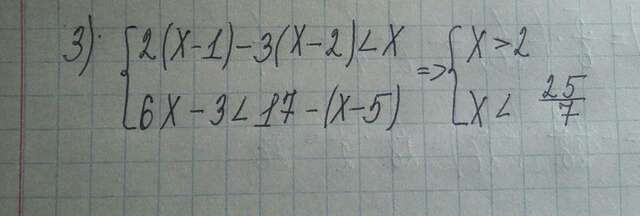 3). { 2(x-1)-3(x-2)<x => { x>2
6x-3<17-(x-5) x< 25/7